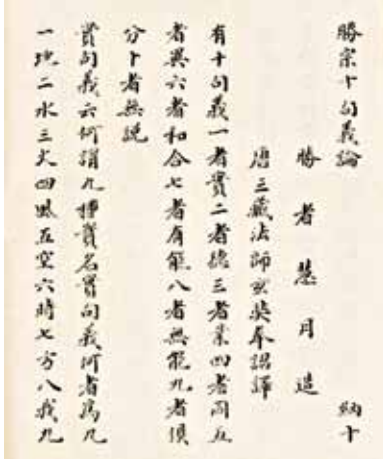 勝宗十句義論 納十
勝者慧月造
唐三藏法師玄奘奉詔譯
有十句義一者實二者德三者業四者同五
者異六者和合七者有能八者無能九者俱
分十者無説
實句義云何謂九種實名實句義何者爲九
一地二水三火四風五空六時七方八我九